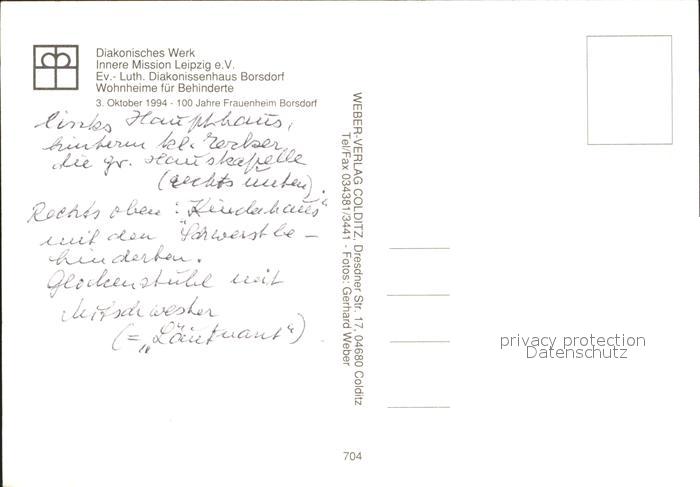 Diakonisches Werk
Innere Mission Leipzig e.V.
Ev.- Luth. Diakonissenhaus Borsdorf
Wohnheime für Behinderte
3. Oktober 1994 - 100 Jahre Frauenheim Borsdorf
links Haupthaus,
hinterm kl. Erker
die gr. Hauskapelle
(rechts unten).
Rechts oben: "Kinderhaus"
mit den Schwerstbe-
hinderten.
Glockenstuhl mit
Mitschwester
(= „Läutnant")
WEBER-VERLAG COLDITZ, Dresdner Str. 17, 04680 Colditz
Tel/Fax 034381/3441 - Fotos: Gerhard Weber
privacy protection
Datenschutz
704